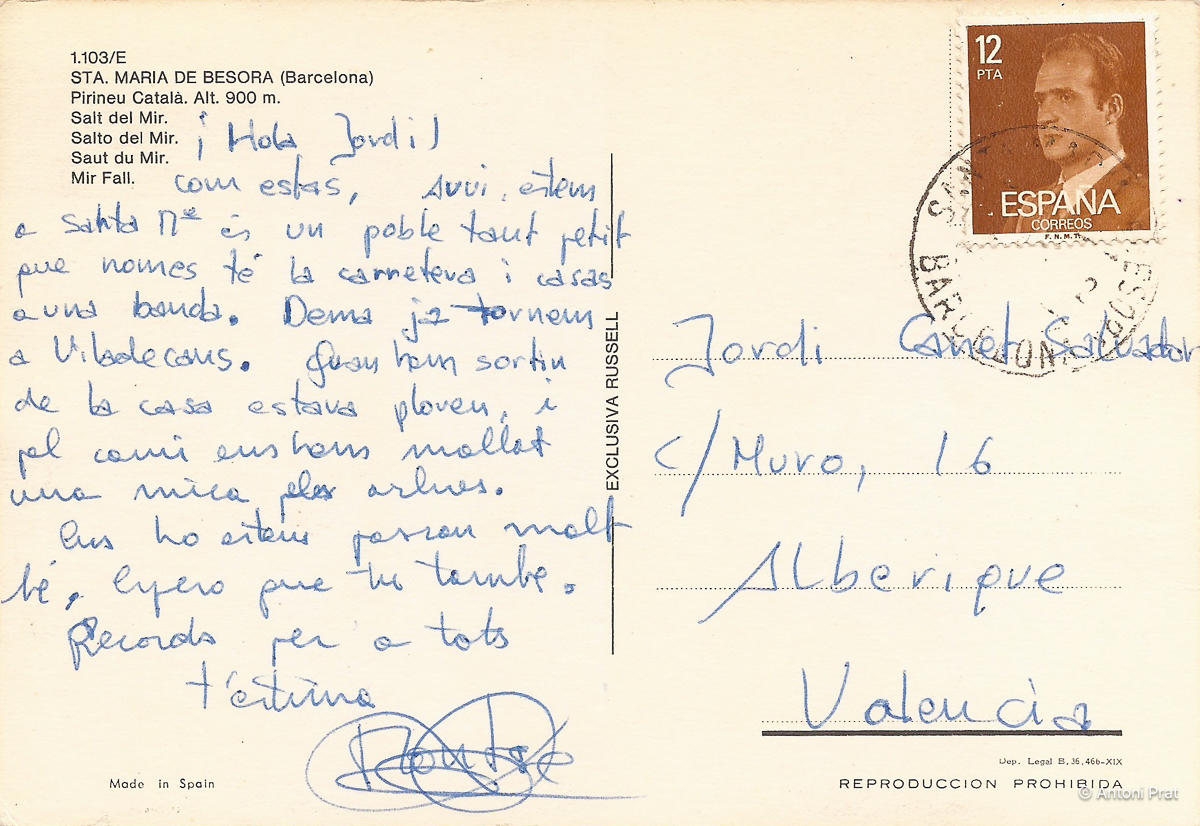 1.103/E
STA. MARIA DE BESORA (Barcelona)
Pirineu Català. Alt. 900 m.
Salt del Mir.
Salto del Mir.
Saut du Mir.
Mir Fall.
¡Hola Jordi!
com estas, avui, estem
a Santa Mª és un poble tant petit
que nomes té la carretera i casas
a una banda. Dema ja tornem
a Viladecans. Quan hem sortin
de la casa estava ploven, i
pel cami ens hem mullat
una mica
Ens ho estem passan molt
bé, Espero que tu tambe.
Records per a tots
t'estima
Montse
Made in Spain
EXCLUSIVA RUSSELL
12
PTA
ESPAÑA
CORREOS
F.N.M.T.
SANTA MARIA BESORA
BARCELONA
Jordi Canet Salvador
c/ Muro, 16
Alberique
Valencia
Dep. Legal B. 36.466-XIX
REPRODUCCION PROHIBIDA
© Antoni Prat